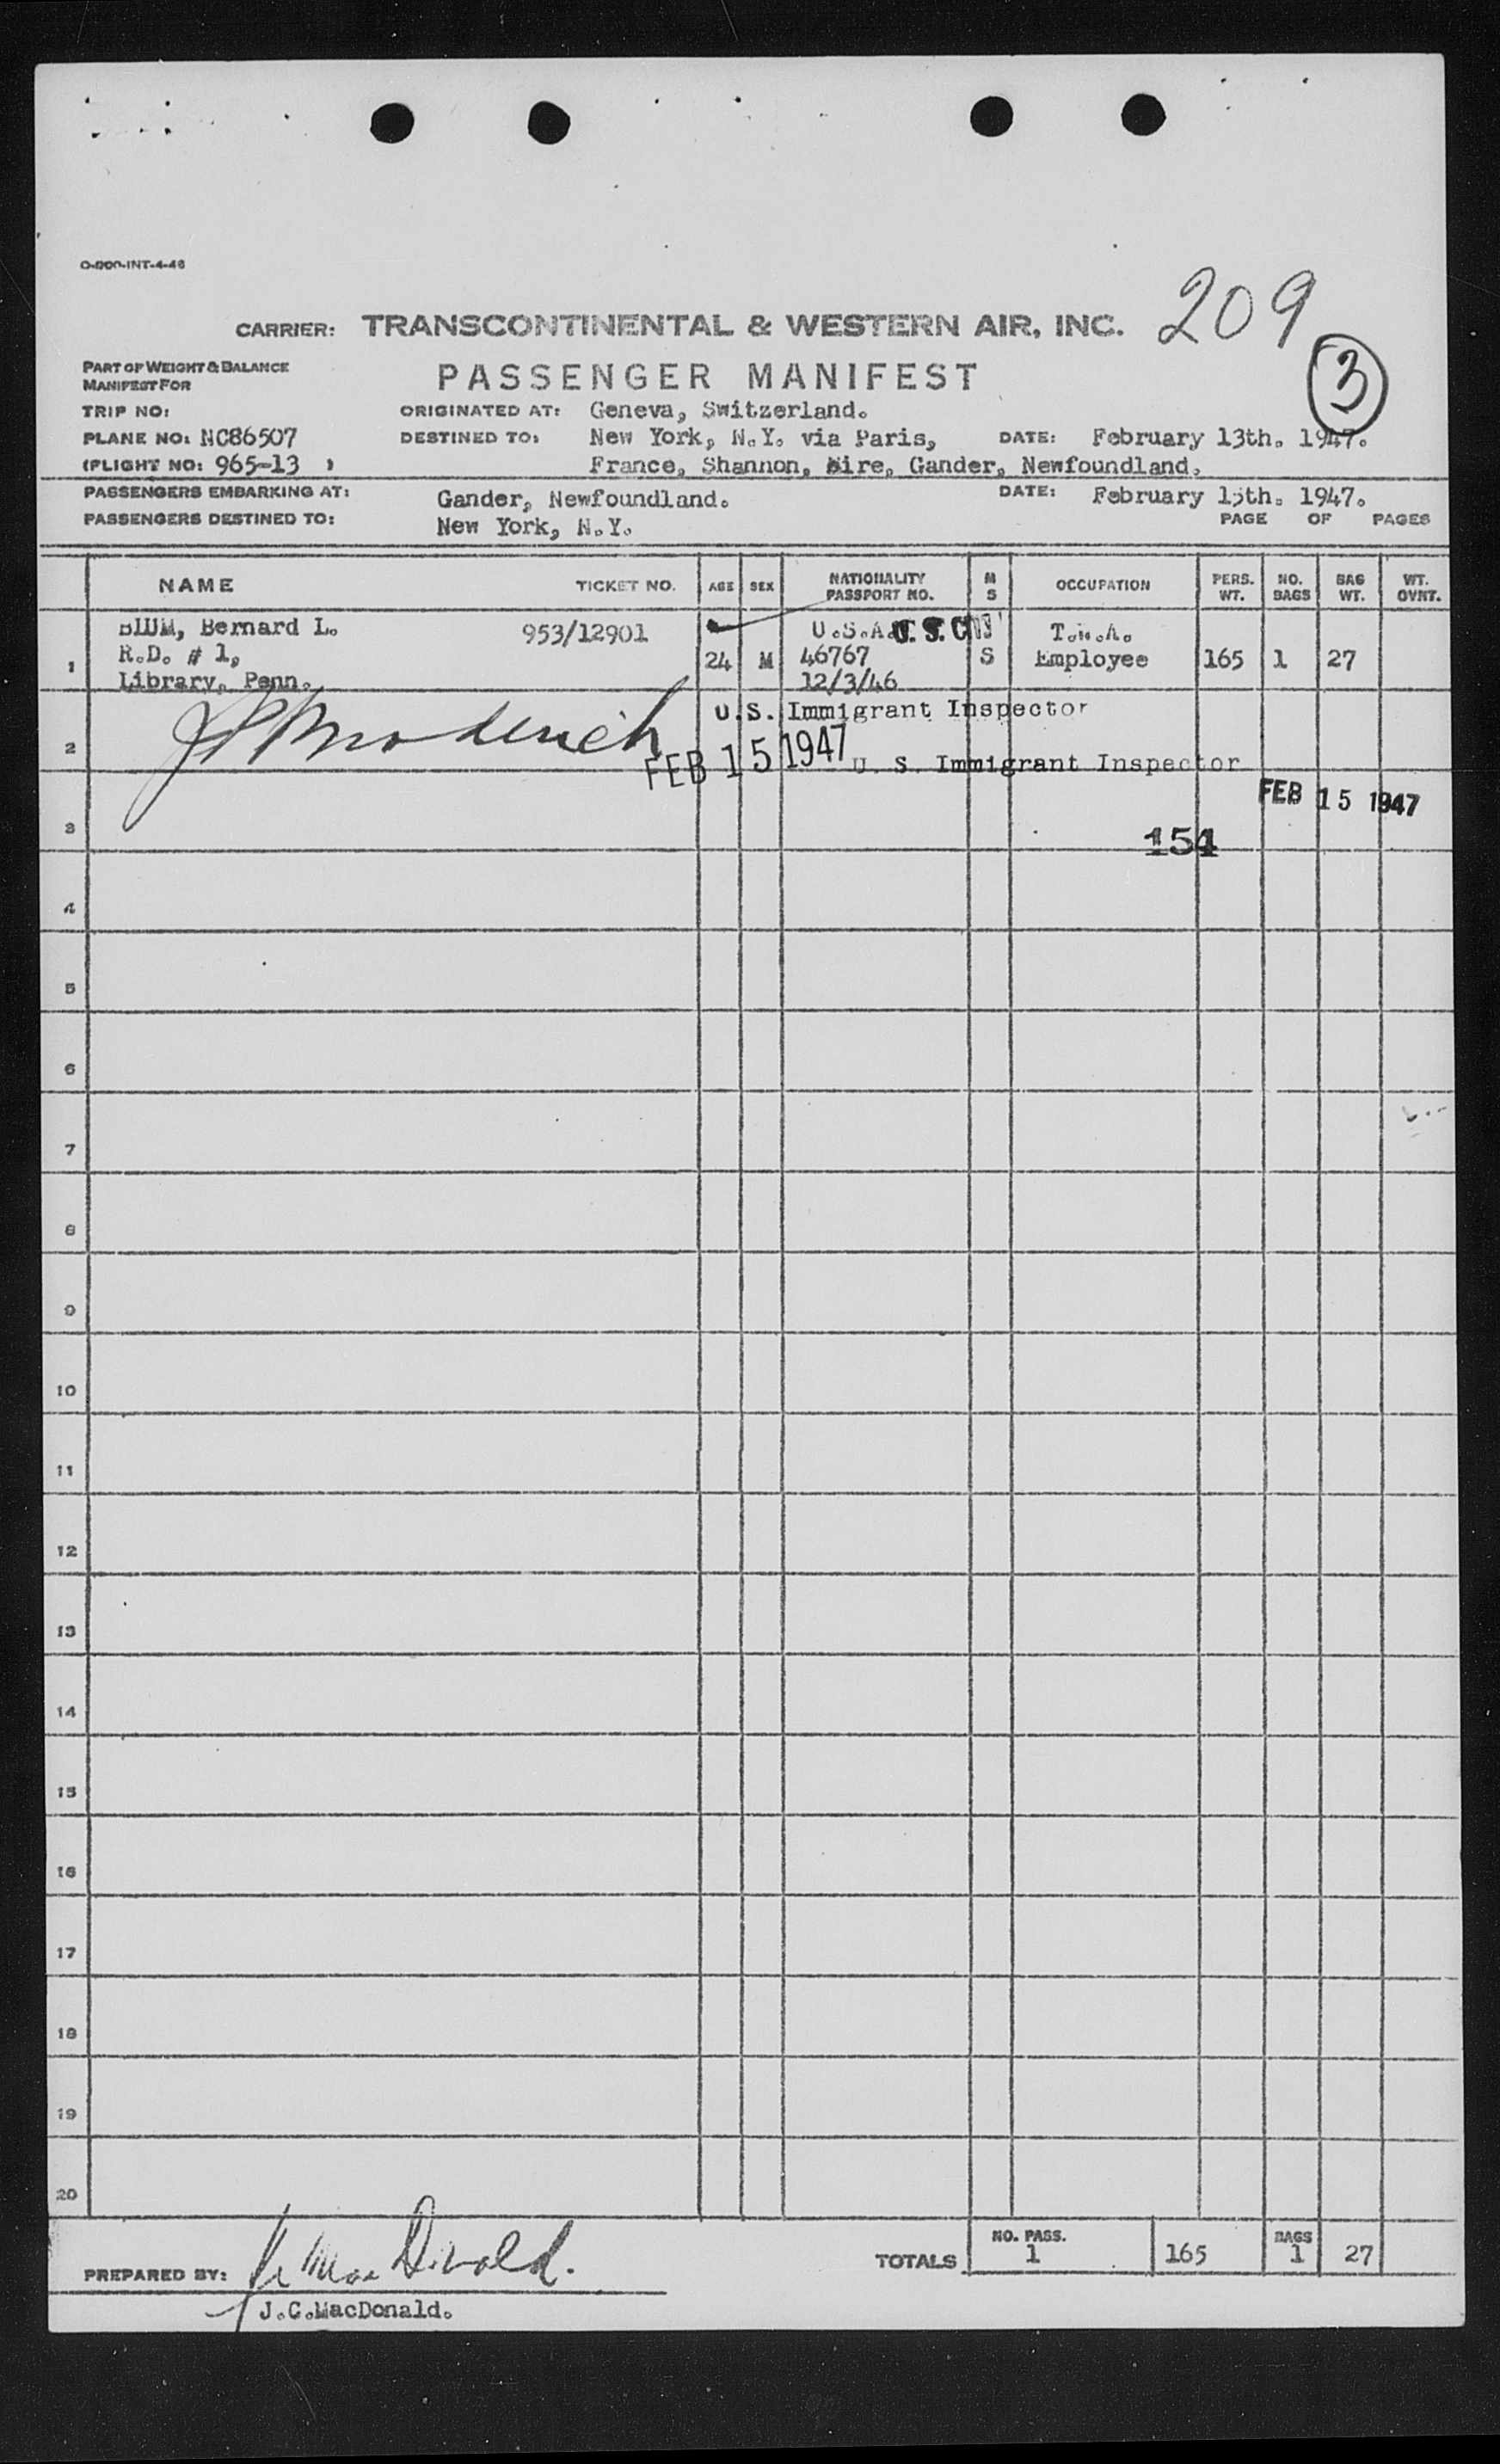 O-900-INT-4-46
209
CARRIER: TRANSCONTINENTAL & WESTERN AIR, INC.
3
PART OF WEIGHT & BALANCE
MANIFEST FOR
PASSENGER MANIFEST
TRIP NO:
ORIGINATED AT: Geneva, Switzerland.
PLANE NO: NC86507
DESTINED TO: New York, N.Y. via Paris, DATE: February 13th. 1947.
(FLIGHT NO: 965-13 )
France, Shannon, Eire, Gander, Newfoundland.
PASSENGERS EMBARKING AT: Gander, Newfoundland. DATE: February 15th. 1947.
PASSENGERS DESTINED TO: New York, N.Y. PAGE OF PAGES
NAME TICKET NO. AGE SEX NATIONALITY PASSPORT NO. M S OCCUPATION PERS. WT. NO. BAGS BAG WT. WT. OVNT.
BLUM, Bernard L. 953/12901 U.S.A. U.S.C. T.W.A.
R.D. # 1, 24 M 46767 S Employee 165 1 27
1 Library, Penn. 12/3/46
U.S. Immigrant Inspector
2 FEB 15 1947 U. S. Immigrant Inspector
FEB 15 1947
3 154
4
5
6
7
8
9
10
11
12
13
14
15
16
17
18
19
20
TOTALS NO. PASS. 1 165 BAGS 1 27
PREPARED BY: J C MacDonald.
J.C.MacDonald.